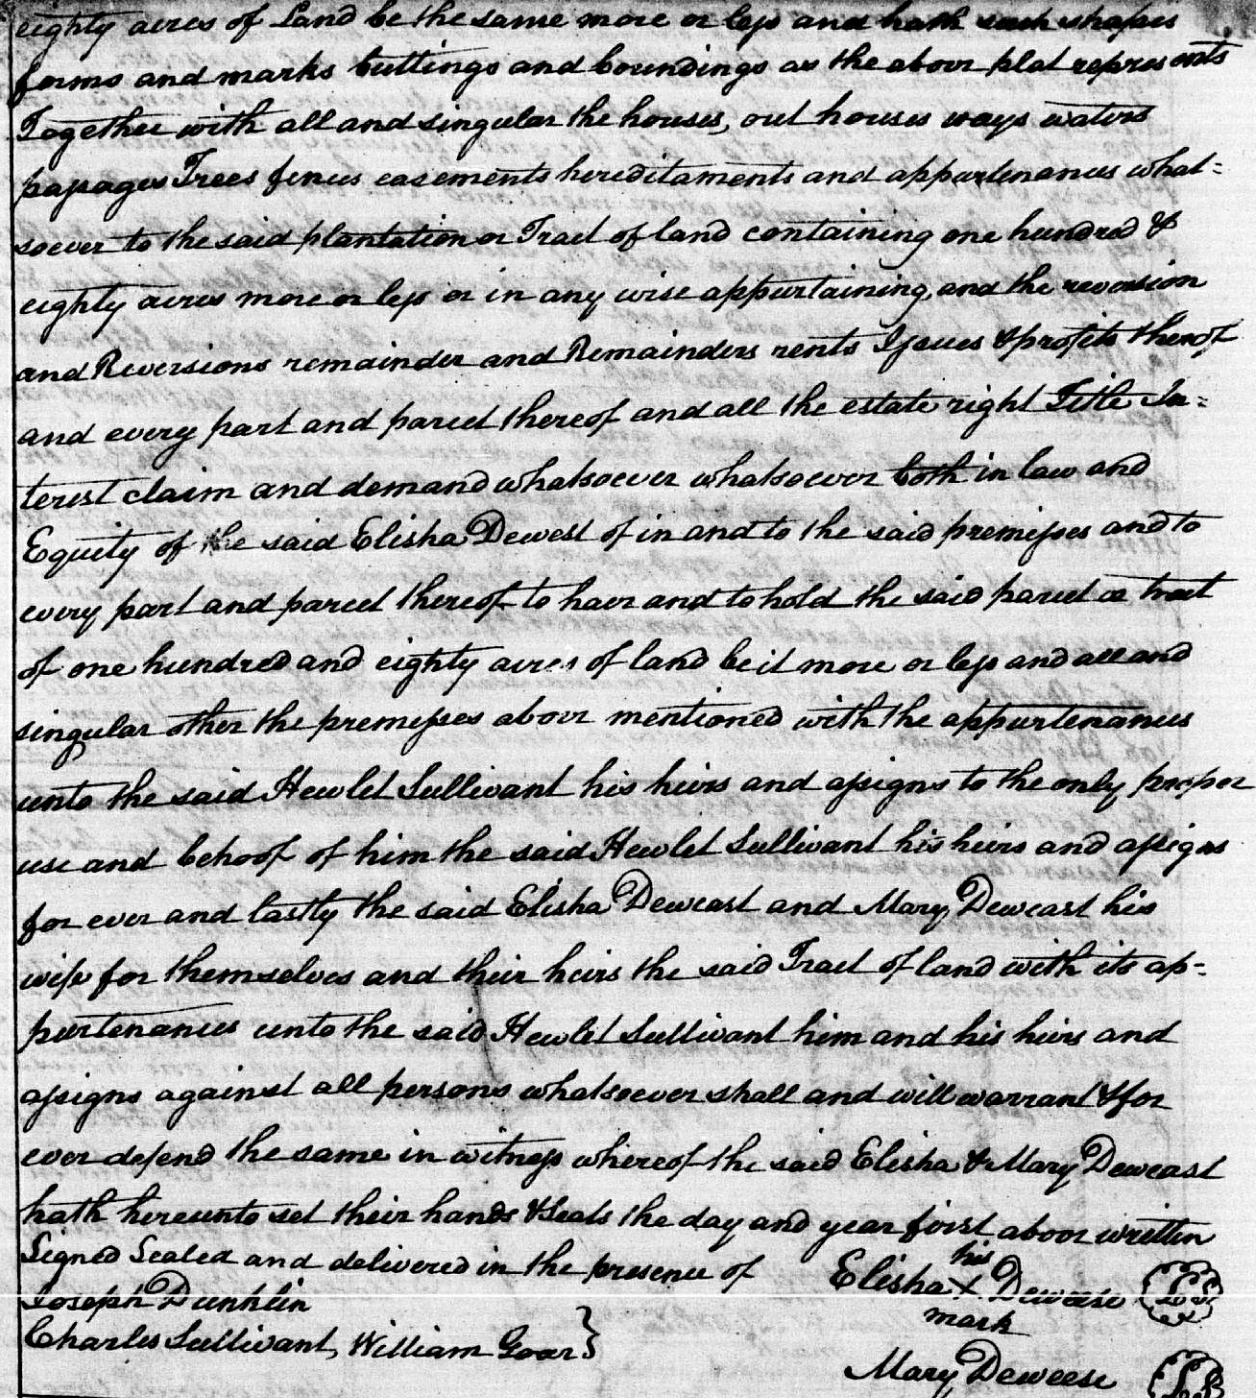 eighty acres of Land be the same more or less and hath such shapes
forms and marks buttings and boundings as the above plat represents
Together with all and singular the houses, out houses ways waters
passages Trees fences easements hereditaments and appurtenances what=
soever to the said plantation or Tract of land containing one hundred &
eighty acres more or less or in any wise appurtaining, and the reversion
and Reversions remainder and Remainders rents Issues & profits thereof
and every part and parcel thereof and all the estate right Title In=
terest claim and demand whatsoever whatsoever both in law and
Equity of the said Elisha Dewest of in and to the said premisses and to
every part and parcel thereof to have and to hold the said parcel or tract
of one hundred and eighty acres of land be it more or less and all and
singular other the premesses above mentioned with the appurtenances
unto the said Hewlet Sullivant his heirs and assigns to the only proper
use and behoof of him the said Hewlet Sullivant his heirs and assigns
for ever and lastly the said Elisha Deweast and Mary Deweast his
wife for themselves and their heirs the said Tract of land with its ap=
purtenances unto the said Hewlet Sullivant him and his heirs and
assigns against all persons whatsoever shall and will warrant & for
ever defend the same in witness whereof the said Elisha & Mary Deweast
hath hereunto set their hands & Seals the day and year first above written
Signed Sealed and delivered in the presence of
his
Elisha X Deweese LS
mark
Joseph Dunklin
Charles Sullivant, William Goar }
Mary Deweese LS